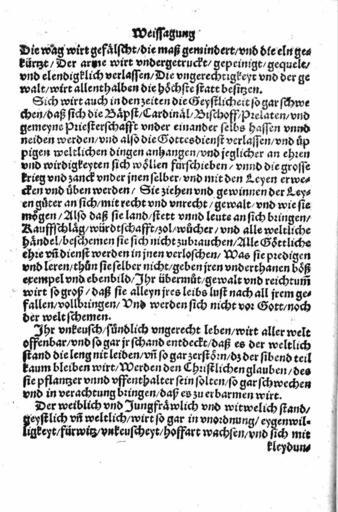 Weissagung
Die wag wirt gefälscht/die maß gemindert/vnd die eln ge-
kürtzt/ Der arme wirt vndergetruckt/gepeinigt/gequele/
vnd elendigklich verlassen/ Die vngerechtigkeyt vnd der ge
walt/wirt allenthalben die höchste statt besitzen.
Sich wirt auch in den zeiten die Geystlicheit so gar schwe
chen/daß sich die Bäpst/Cardinäl/Bischoff/Prelaten/vnd
gemeyne Priesterschafft vnder einander selbs hassen vnnd
neiden werden/vnd also die Gottesdienst verlassen/vnd üp
pigen weltlichen dingen anhangen/vnd jeglicher an ehren
vnd wirdigkeyten sich wöllen fürschieben/ vnnd die grosse
krieg vnd zanck vnder jnen selber/vnd mit den Leyen erwe-
cken vnd üben werden/ Sie ziehen vnd gewinnen der Ley-
en güter an sich/mit recht vnd vnrecht/ gewalt/vnd wie sie
mögen/ Also daß sie land/stett vnnd leute an sich bringen/
Kauffschläg/würdtschafft/zol/wücher/ vnd alle weltliche
händel/beschemen sie sich nicht zubrauchen/Alle Göttliche
ehre vñ dienst werden in jnen verloschen/ Was sie predigen
vnd leren/thün sie selber nicht/geben jren vnderthanen böß
exempel vnd ebenbild/Ihr übermüt/gewalt vnd reichtum̃
wirt so groß/ daß sie alleyn jres leibs lust nach all jrem ge-
fallen/vollbringen/ Vnd werden sich nicht vor Gott/noch
der welt schemen.
Ihr vnkeusch/sündlich vngerecht leben/wirt aller welt
offenbar/vnd so gar jr schand entdeckt/daß es der weltlich
stand die leng nit leiden/vñ so gar zerstörn/dz der sibend teil
kaum bleiben wirt/Werden den Christlichen glauben/des
sie pflantzer vnnd offenthalter sein solten/so gar schwechen
vnd in verachtung bringen/daß es zu erbarmen wirt.
Der weiblich vnd Jungfräwlich vnd witwelich stand/
geystlich vñ weltlich/wirt so gar in vnordnung/eygenwil-
ligkeyt/fürwitz/vnkeuscheyt/hoffart wachsen/vnd sich mit
kleydun-